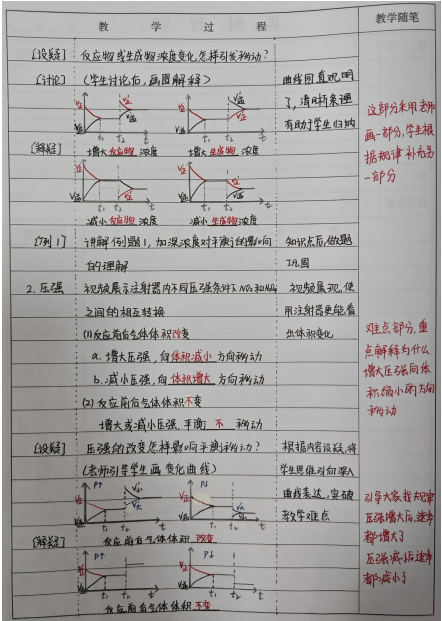 教 学 过 程
教学随笔
[设疑] 反应物或生成物浓度变化怎样引发移动?
[讨论] (学生讨论后,画图解释) 曲线图直观明
了,清晰条理
有助于学生归纳
这部分采用老师
画一部分,学生根
据规律补充另
一部分
[解疑] 增大反应物浓度 增大生成物浓度
减小反应物浓度 减小生成物浓度
[例1] 讲解例题1,加深浓度对平衡的影响 知识点后,做题
的理解 巩固
2. 压强 视频展示注射器内不同压强条件下NO₂和N₂O₄ 视频展现,使
之间的相互转换 用注射器更能看
(1)反应前后气体体积改变 出体积变化
a. 增大压强,向体积减小方向移动
b. 减小压强,向体积增大方向移动
难点部分,重
点解释为什么
增大压强向体
积缩小的方向
移动
(2)反应前后气体体积不变
增大或减小压强,平衡 不 移动
[设疑] 压强的改变怎样影响平衡移动? 根据内容设疑,将
(老师引导学生画变化曲线) 学生思维引向深入
曲线表达,突破
教学难点
P↑ P↓
引导大家找规律
压强增大后,速率
都增大了
压强减小后,速率
都减小了
[解疑] 反应前后气体体积 改变
P↑ P↓
反应前后气体体积 不变